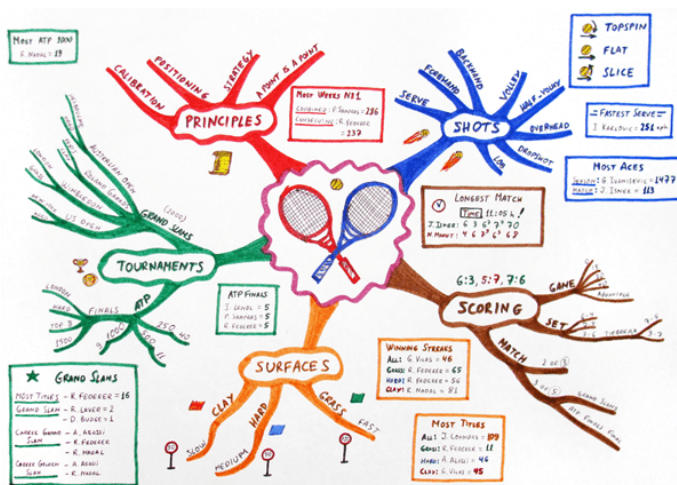 MOST ATP 1000
R. NADAL = 19
CALIBRATION
POSITIONING
STRATEGY
A POINT IS A POINT
PRINCIPLES
MOST WEEKS Nº1
COMBINED: P. SAMPRAS = 286
CONSECUTIVE: R. FEDERER
= 237
SERVE
FOREHAND
BACKHAND
VOLLEY
HALF-VOLLEY
OVERHEAD
DROPSHOT
LOB
SHOTS
TOPSPIN
FLAT
SLICE
FASTEST SERVE
I. KARLOVIC = 251 kph
MOST ACES
SEASON: G. IVANISEVIC = 1477
MATCH: J. ISNER = 113
LONGEST MATCH
TIME 11:05 h!
J. ISNER: 6 3 6⁷ 7⁷ 70
N. MAHUT: 4 6 7⁹ 6³ 68
MELBOURNE
HARD
AUSTRALIAN OPEN
PARIS
CLAY
ROLAND GARROS
LONDON
GRASS
WIMBLEDON
NEW YORK
HARD
US OPEN
GRAND SLAMS
(2000)
TOURNAMENTS
ATP
FINALS
LONDON
HARD
TOP 8
1500
1000
9
500
11
250
40
ATP FINALS
I. LENDL = 5
P. SAMPRAS = 5
R. FEDERER = 5
6:3, 5:7, 7:6
SCORING
GAME
ADVANTAGE
SET
6-4
7-5
7-6
TIEBREAK
7-5
MATCH
2 OF 3
3 OF 5
GRAND SLAMS
ATP FINALS FINAL
SURFACES
CLAY
SLOW
HARD
MEDIUM
GRASS
FAST
WINNING STREAKS
ALL: G. VILAS = 46
GRASS: R. FEDERER = 65
HARD: R. FEDERER = 56
CLAY: R. NADAL = 81
MOST TITLES
ALL: J. CONNORS = 109
GRASS: R. FEDERER = 11
HARD: A. AGASSI = 46
CLAY: G. VILAS = 45
GRAND SLAMS
MOST TITLES - R. FEDERER = 16
GRAND SLAM - R. LAVER = 2
- D. BUDGE = 1
CAREER GRAND SLAM - A. AGASSI
- R. FEDERER
- R. NADAL
CAREER GOLDEN SLAM - A. AGASSI
- R. NADAL